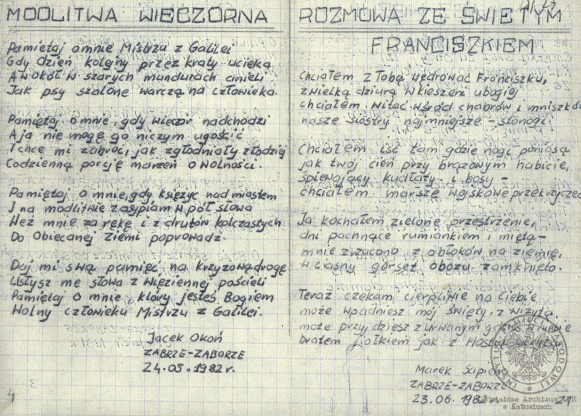 MODLITWA WIECZORNA
Pamiętaj o mnie Mistrzu z Galilei
Gdy dzień kolejny przez kraty ucieka
A wokół w szarych mundurach anieli
Jak psy szalone warczą na człowieka.
Pamiętaj o mnie, gdy wieczór nadchodzi
A ja nie mogę go niczym ugościć
I chce mi zabrać jak zgłodniały złodziej
Codzienną porcję marzeń o wolności.
Pamiętaj o mnie, gdy księżyc nad miastem
I na modlitwie zasypiam w pół słowa
Weź mnie za rękę i z drutów kolczastych
Do Obiecanej Ziemi poprowadź.
Daj mi swą pamięć na krzyżową drogę
Usłysz me słowa z więziennej pościeli
Pamiętaj o mnie, który jesteś Bogiem
Wolny człowieku Mistrzu z Galilei.
Jacek Okoń
ZABRZE-ZABORZE
24.05.1982 r.
4
ROZMOWA ZE ŚWIĘTYM
FRANCISZKIEM
Chciałem z Tobą wędrować Franciszku,
z wielką dziurą w kieszeni ubogiej
chciałem witać wśród chabrów i
nasze siostry najmniejsze - stonogi.
Chciałem iść tam gdzie nogi poniosą
jak twój cień przy brązowym habicie,
śpiewający kudłaty i bosy -
chciałem marsze wojskowe
Ja kochałem zielone przestrzenie,
dni pachnące rumiankiem i miętą -
mnie zrzucono z obłoków na ziemię,
w ciasny gorset obozu zamknięto.
Teraz czekam cierpliwie na Ciebie
może wpadniesz mój święty z wizytą
może przyjdziesz z urwanym
bratem jak z
Marek
ZABRZE-ZABORZE
23.06.1982
w Katowicach